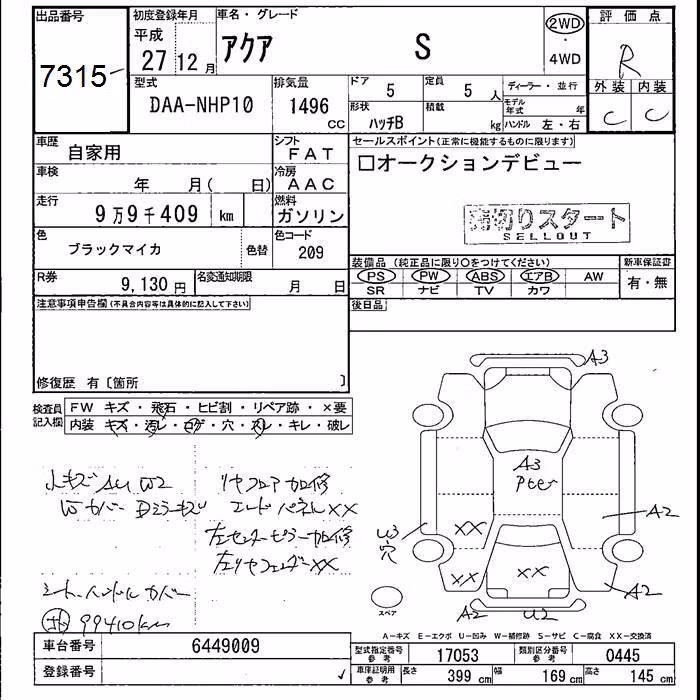 出品番号
7315
初度登録年月
平成
27 12月
車名・グレード
アクア S
2WD
・
4WD
評価点
R
外装 内装
C C
型式
DAA-NHP10
排気量
1496
CC
ドア 5
定員 5 人
形状 ハッチB
積載 kg
ディーラー・並行
モデル年式 年
ハンドル 左・右
車歴 自家用
シフト FAT
車検 年 月( 日)
冷房 AAC
走行 9万9千409 km
燃料 ガソリン
色 ブラックマイカ 色替
色コード 209
R券 9,130円
名変通知期限 月 日
セールスポイント(正常に機能するものに限ります)
□オークションデビュー
売切りスタート
SELLOUT
装備品(純正品に限り○をつけてください)
PS PW ABS エアB AW
SR ナビ TV カワ
新車保証書
有・無
後日品
注意事項申告欄(不具合内容等は具体的に記入して下さい)
修復歴 有〔箇所 〕
検査員記入欄
FW キズ・飛石・ヒビ割・リペア跡・×要
内装 キズ・汚レ・コゲ・穴・スレ・キレ・破レ
小キズ AU W2
Wカバー Dミラーキズ
リヤフロア加修
エンドパネルXX
左センターピラー加修
左リヤフェンダーXX
シート、ハンドル カバー
99410km
A3
A3
Pte
A2
W3
穴
XX
XX
XX
A2
A2
U2
スペア
A―キズ E―エクボ U―凹み W―補修跡 S―サビ C―腐食 XX―交換済
車台番号 6449009
登録番号
型式指定番号 参考 17053
類別区分番号 参考 0445
車庫証明用 参考 長さ 399 cm 幅 169 cm 高さ 145 cm